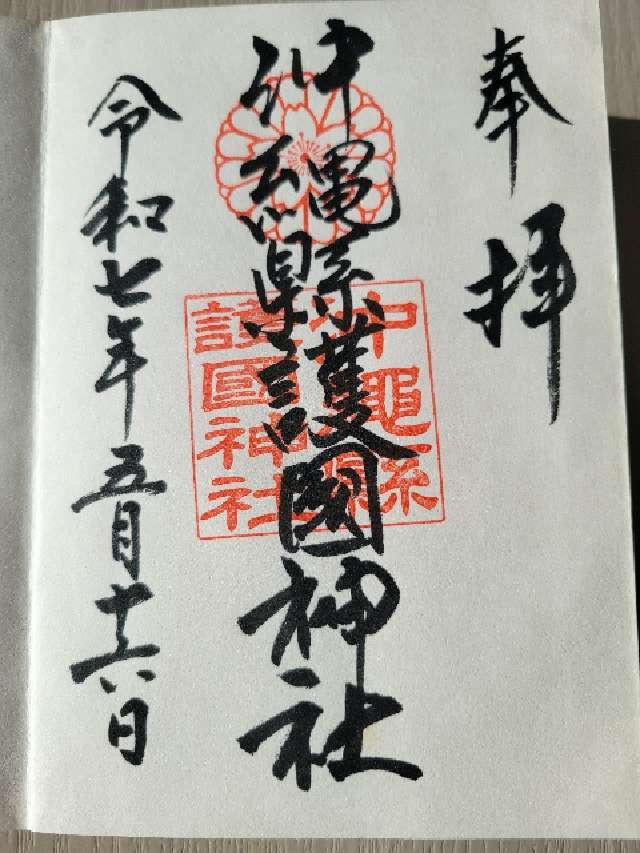 奉拝
沖縄縣護國神社
令和七年五月十六日
沖縄縣
護國神社